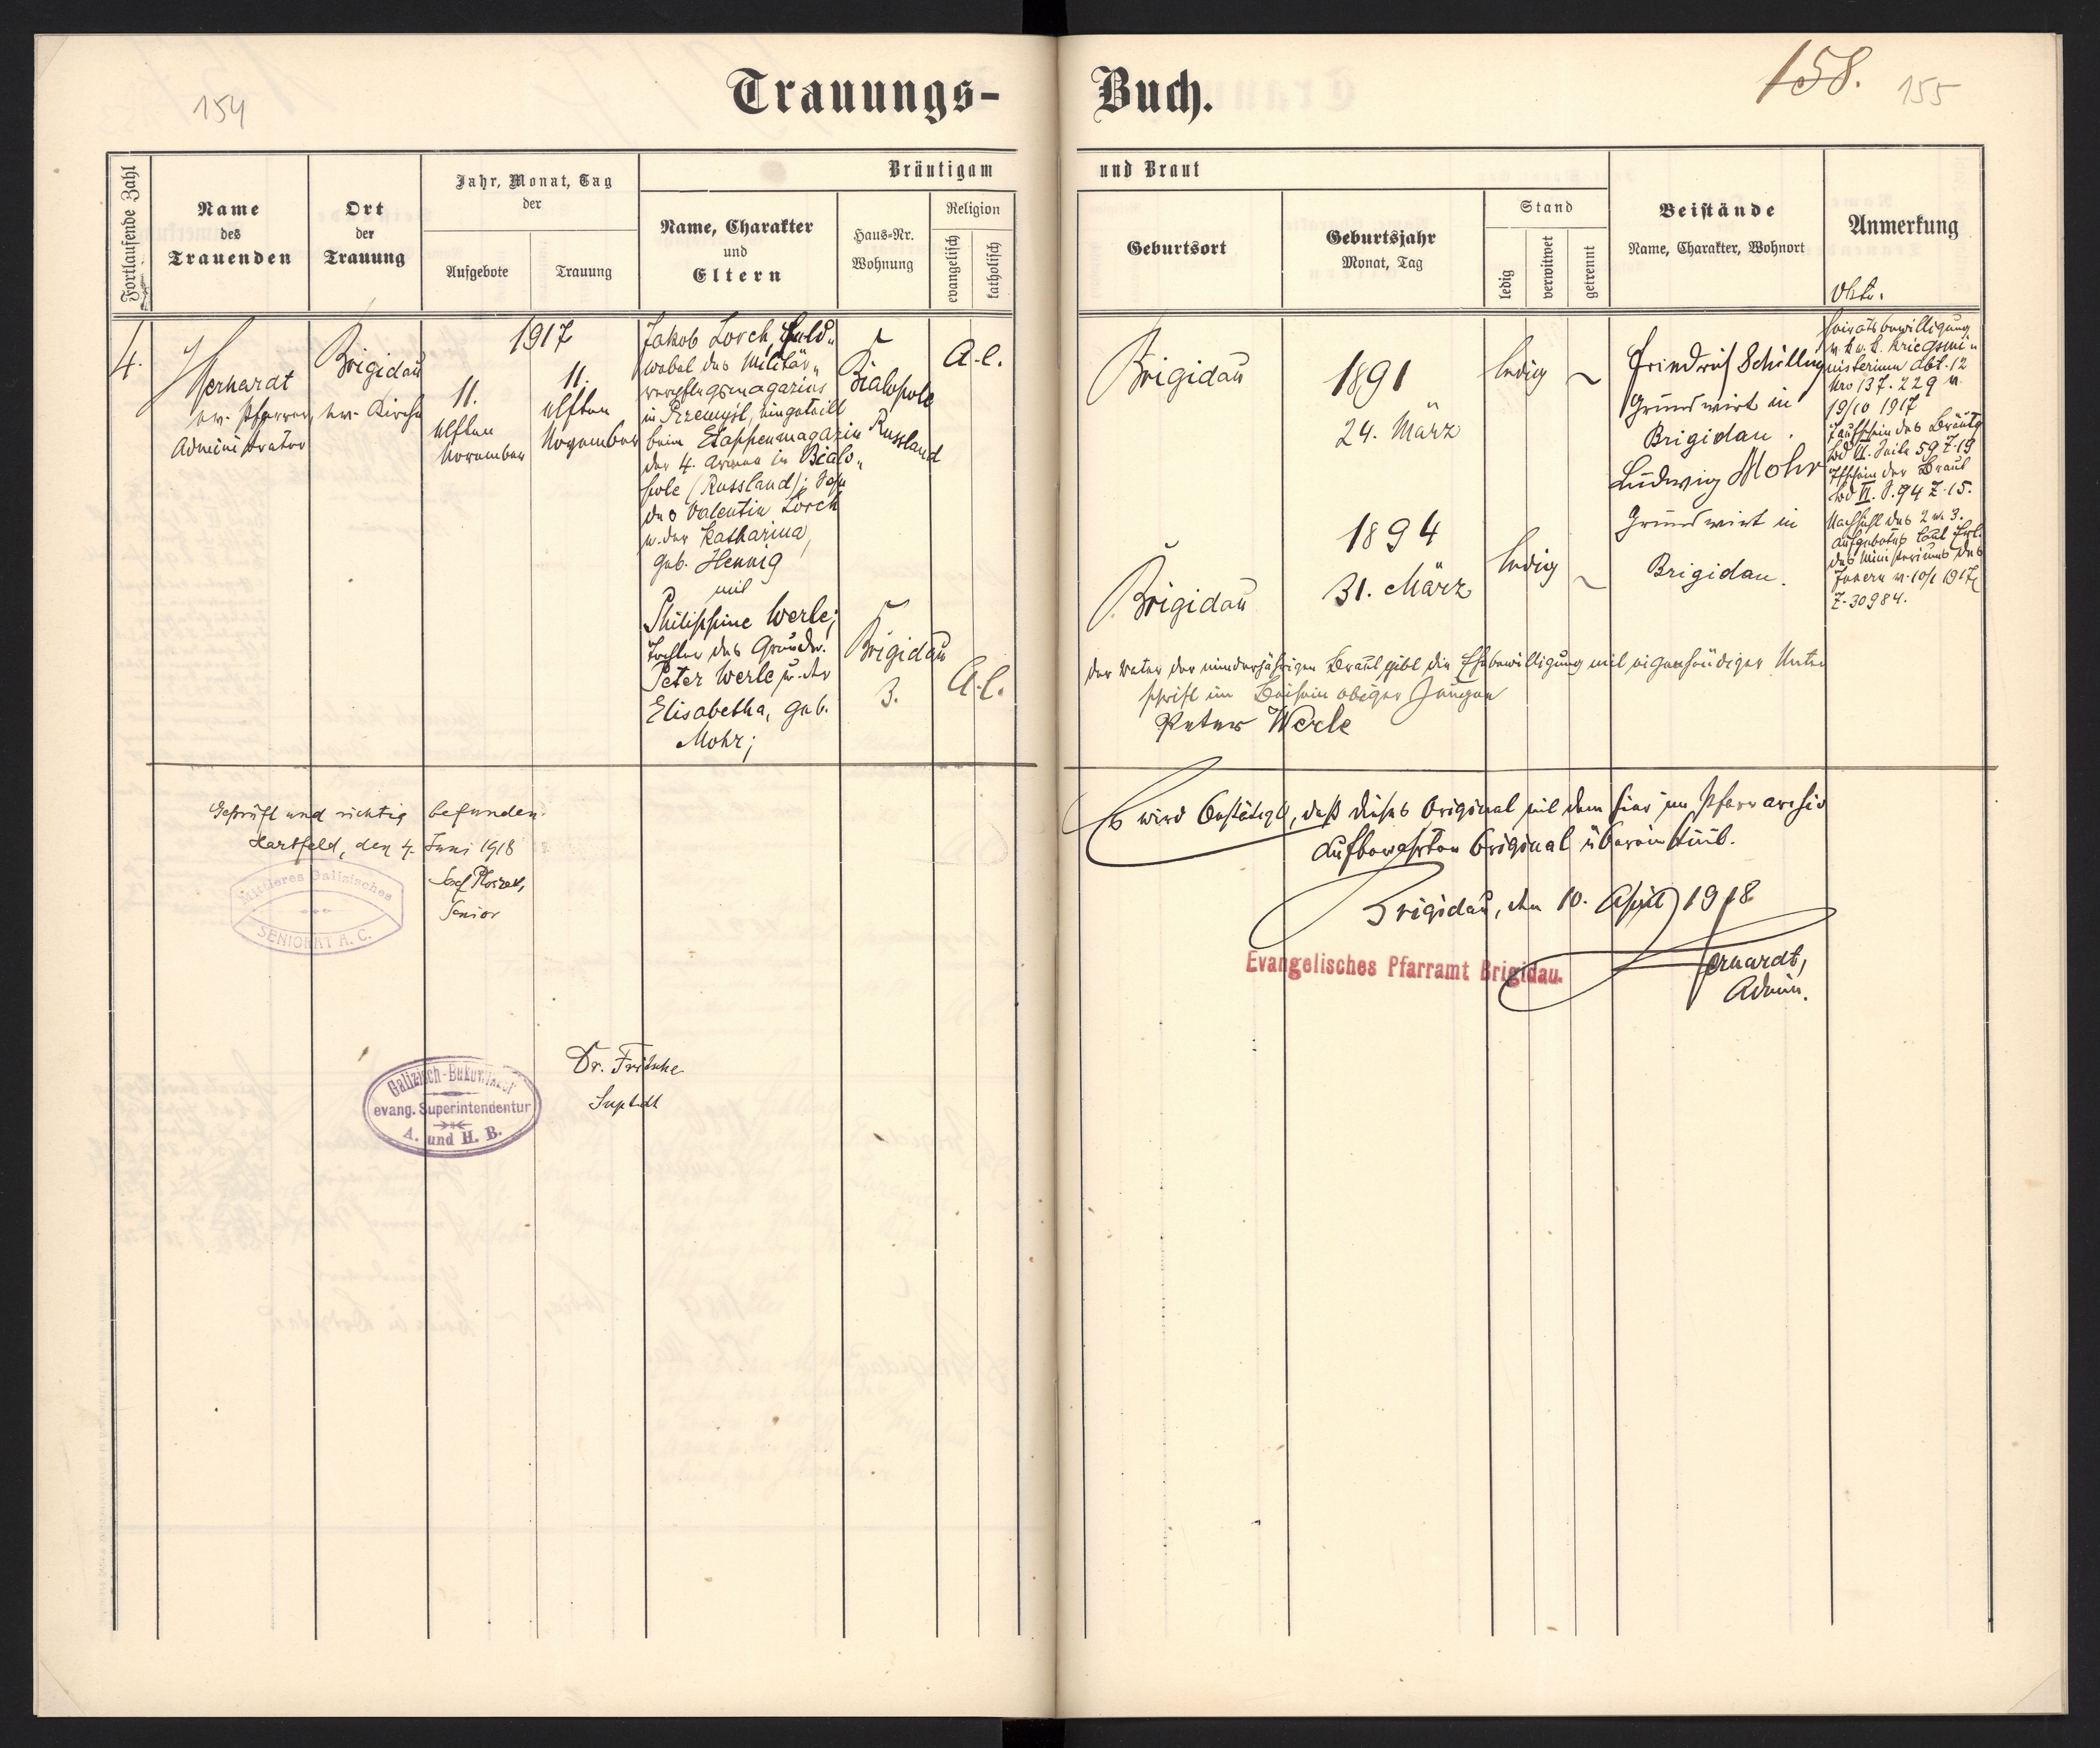 154
Trauungs-
Buch.
158. 155
Fortlaufende Zahl
Name
des
Trauenden
Ort
der
Trauung
Jahr, Monat, Tag
der
Aufgebote
Trauung
Bräutigam
Name, Charakter
und
Eltern
Haus-Nr.
Wohnung
Religion
evangelisch
katholisch
und Braut
Geburtsort
Geburtsjahr
Monat, Tag
Stand
ledig
verwitwet
getrennt
Beistände
Name, Charakter, Wohnort
Anmerkung
4.
ev. Pfarrer,
Administrator
Brigidau
ev. Kirche
1917
11.
elften
November
11.
elften
November
Jakob Lorch, Feld-
webel des Militär-
verpflegsmagazins
in Przemysl, eingeteilt
beim Etappenmagazin
der 4. Armee in Bialo-
pole (Russland); Sohn
des Valentin Lorch
u. der Katharina,
geb. Hennig
mit
Philippine Werle;
Tochter des Grundw.
Peter Werle u. der
Elisabetha, geb.
Mohr;
Bialopole
Russland
A.C.
Brigidau
3.
A.C.
Brigidau
1891
24. März
ledig
Brigidau
1894
31. März
ledig
Friedrich Schilling
Grundwirt in
Brigidau.
Ludwig Mohr
Grundwirt in
Brigidau.
Heiratsbewilligung
v. k. u. k. Kriegsmi-
nisterium Abt. 12
Nro 137.229 v.
19/10 1917
Taufschein des Bräutg
Bd VI. Seite 59 Z. 19
Tfschein der Braut
Bd VI. S. 94 Z. 15.
Nachsehl des 2 u. 3.
Aufgebotes laut Erl.
des Ministeriums des
Innern v. 10/1 1917
Z. 30984.
Der Vater der minderjährigen Braut gibt die Ehebewilligung mit eigenhändiger Unter
schrift im Beisein obiger Zeugen
Peter Werle
Geprüft und richtig befunden.
Hartfeld, den 4. Juni 1918
Senior
Mittleres Galizisches
SENIORAT A. C.
Es wird bestätigt, daß dieses Original mit dem hier im Pfarrarchiv
aufbewahrten Original übereinstimt.
Brigidau, den 10. April 1918
Evangelisches Pfarramt Brigidau.
Admin.
Galizisch-Bukowinaer
evang. Superintendentur
A. und H. B.
Dr. Fritsche
Suptdt